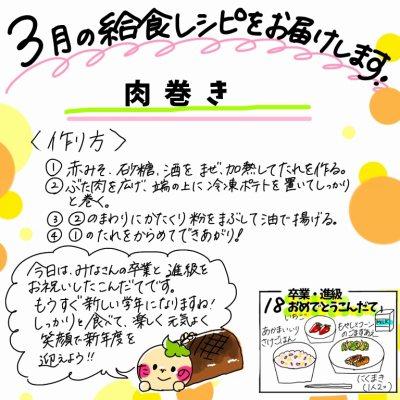 3月の給食レシピをお届けします!
肉巻き
〈作り方〉
① 赤みそ、砂糖、酒をまぜ、加熱してたれを作る。
② ぶた肉を広げ、端の上に冷凍ポテトを置いてしっかり
と巻く。
③ ②のまわりにかたくり粉をまぶして油で揚げる。
④ ①のたれをからめてできあがり!
今日は、みなさんの卒業と進級を
お祝いしたこんだてです。
もうすぐ新しい学年になりますね!
しっかりと食べて、楽しく元気よく
笑顔で新年度を
迎えよう!!
卒業・進級
18 おめでとうこんだて」
いちご
もやしとコーンの
ごまずあえ
あかまいいり
さけごはん
にくまき
(1人2つ)